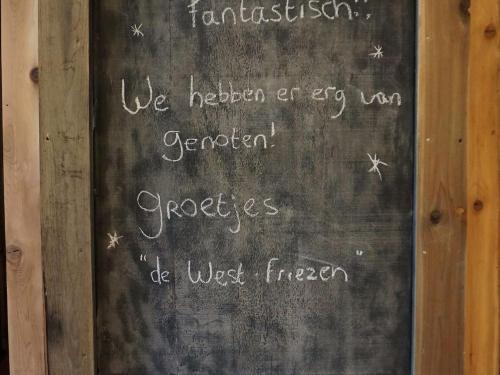 fantastisch!!
We hebben er erg van
genoten!
Groetjes
"de West-Friezen"